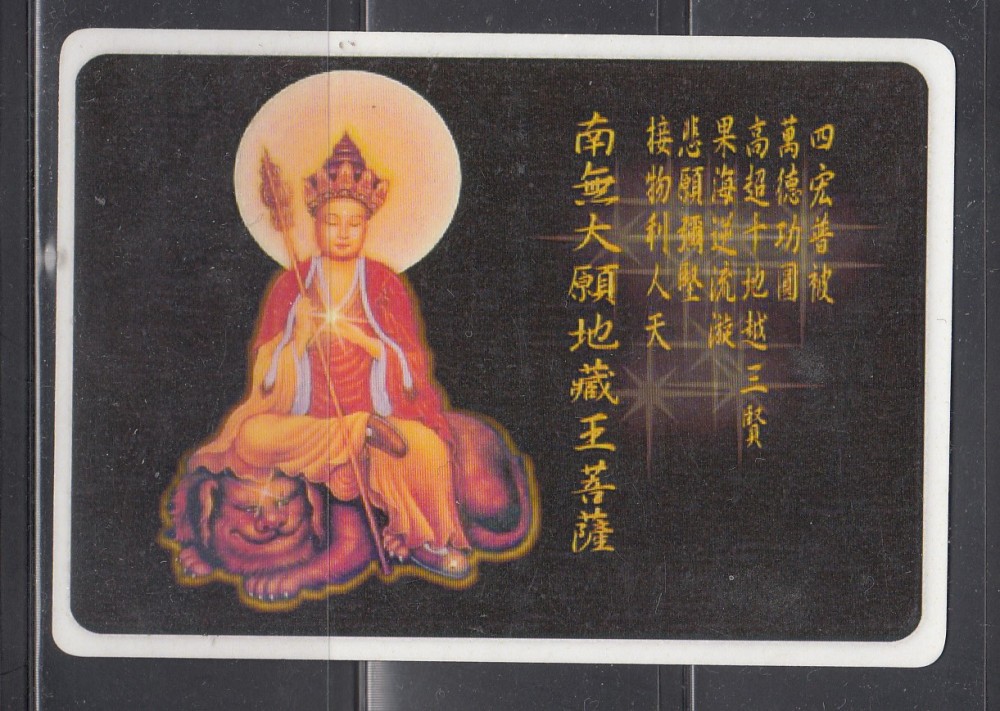 四宏普被
萬德功圓
高超十地越三賢
果海逆流漩
悲願彌堅
接物利人天
南無大願地藏王菩薩